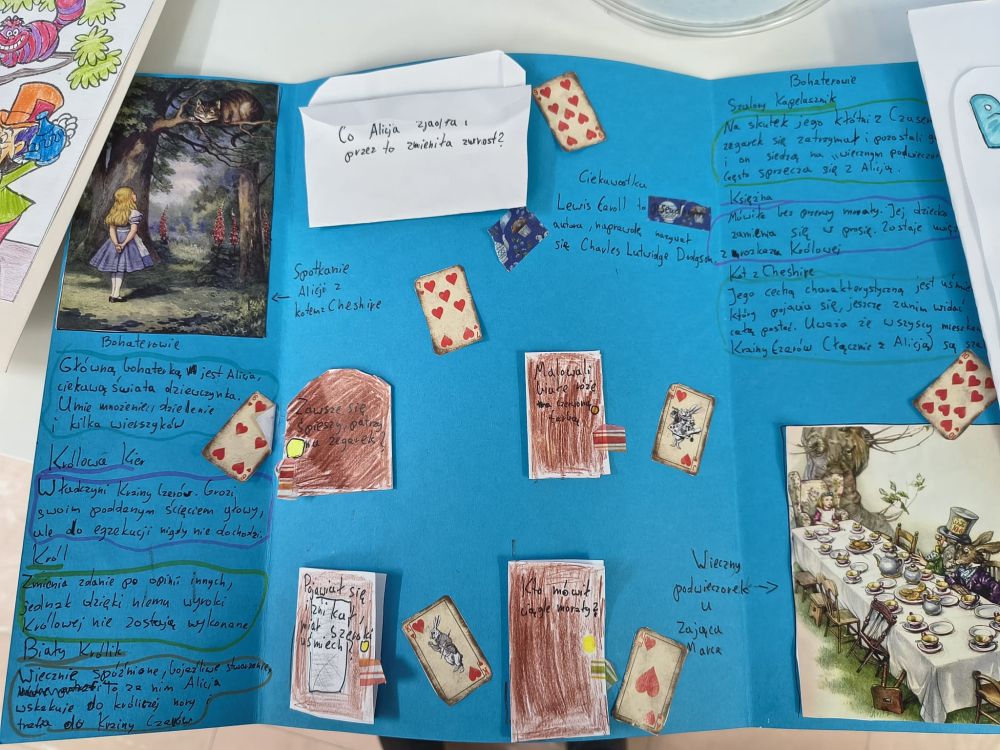 Co Alicja zjadła i
przez to zmieniła wzrost?
Spotkanie
Alicji z
kotem z Cheshire
Bohaterowie
Główną bohaterką jest Alicja,
ciekawą świata dziewczynka.
Umie mnożenie, dzielenie
i kilka wierszyków
Królowa Kier
Władczyni Krainy Czarów. Grozi
swoim poddanym ścięciem głowy,
ale do egzekucji nigdy nie dochodzi.
Król
Zmienia zdanie po opinii innych,
jednak dzięki niemu wyroki
Królowej nie zostają wykonane
Biały Królik
Wiecznie spóźnione, bojaźliwe stworzenie,
to za nim Alicja
wskakuje do króliczej nory i
trafia do Krainy Czarów
Ciekawostka
Lewis Caroll to
autora, naprawdę nazywał
się Charles Lutwidge Dodgson.
Zawsze się
śpieszy, patrzy
na zegarek?
Malowali
białe róże
na czerwoną
farbę
Pojawiał się
i znikał,
miał szeroki
uśmiech?
Kto mówił
ciągle morały?
Bohaterowie
Szalony Kapelusznik
Na skutek jego kłótni z Czasem
zegarek się zatrzymał i pozostali
i on siedzą na „wiecznym
Często sprzecza się z Alicją.
Księżna
Mówiła bez przerwy morały. Jej dziecko
zamienia się w prosię. Zostaje
z rozkazu Królowej
Kot z Cheshire
Jego cechą charakterystyczną jest
który pojawia się, jeszcze zanim widać
całą postać. Uważa że wszyscy
Krainy Czarów (łącznie z Alicją) są
Wieczny
podwieczorek
u
Zająca
Marca